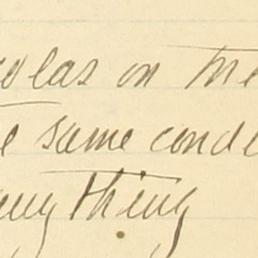 olas on the
e same condi
any thing